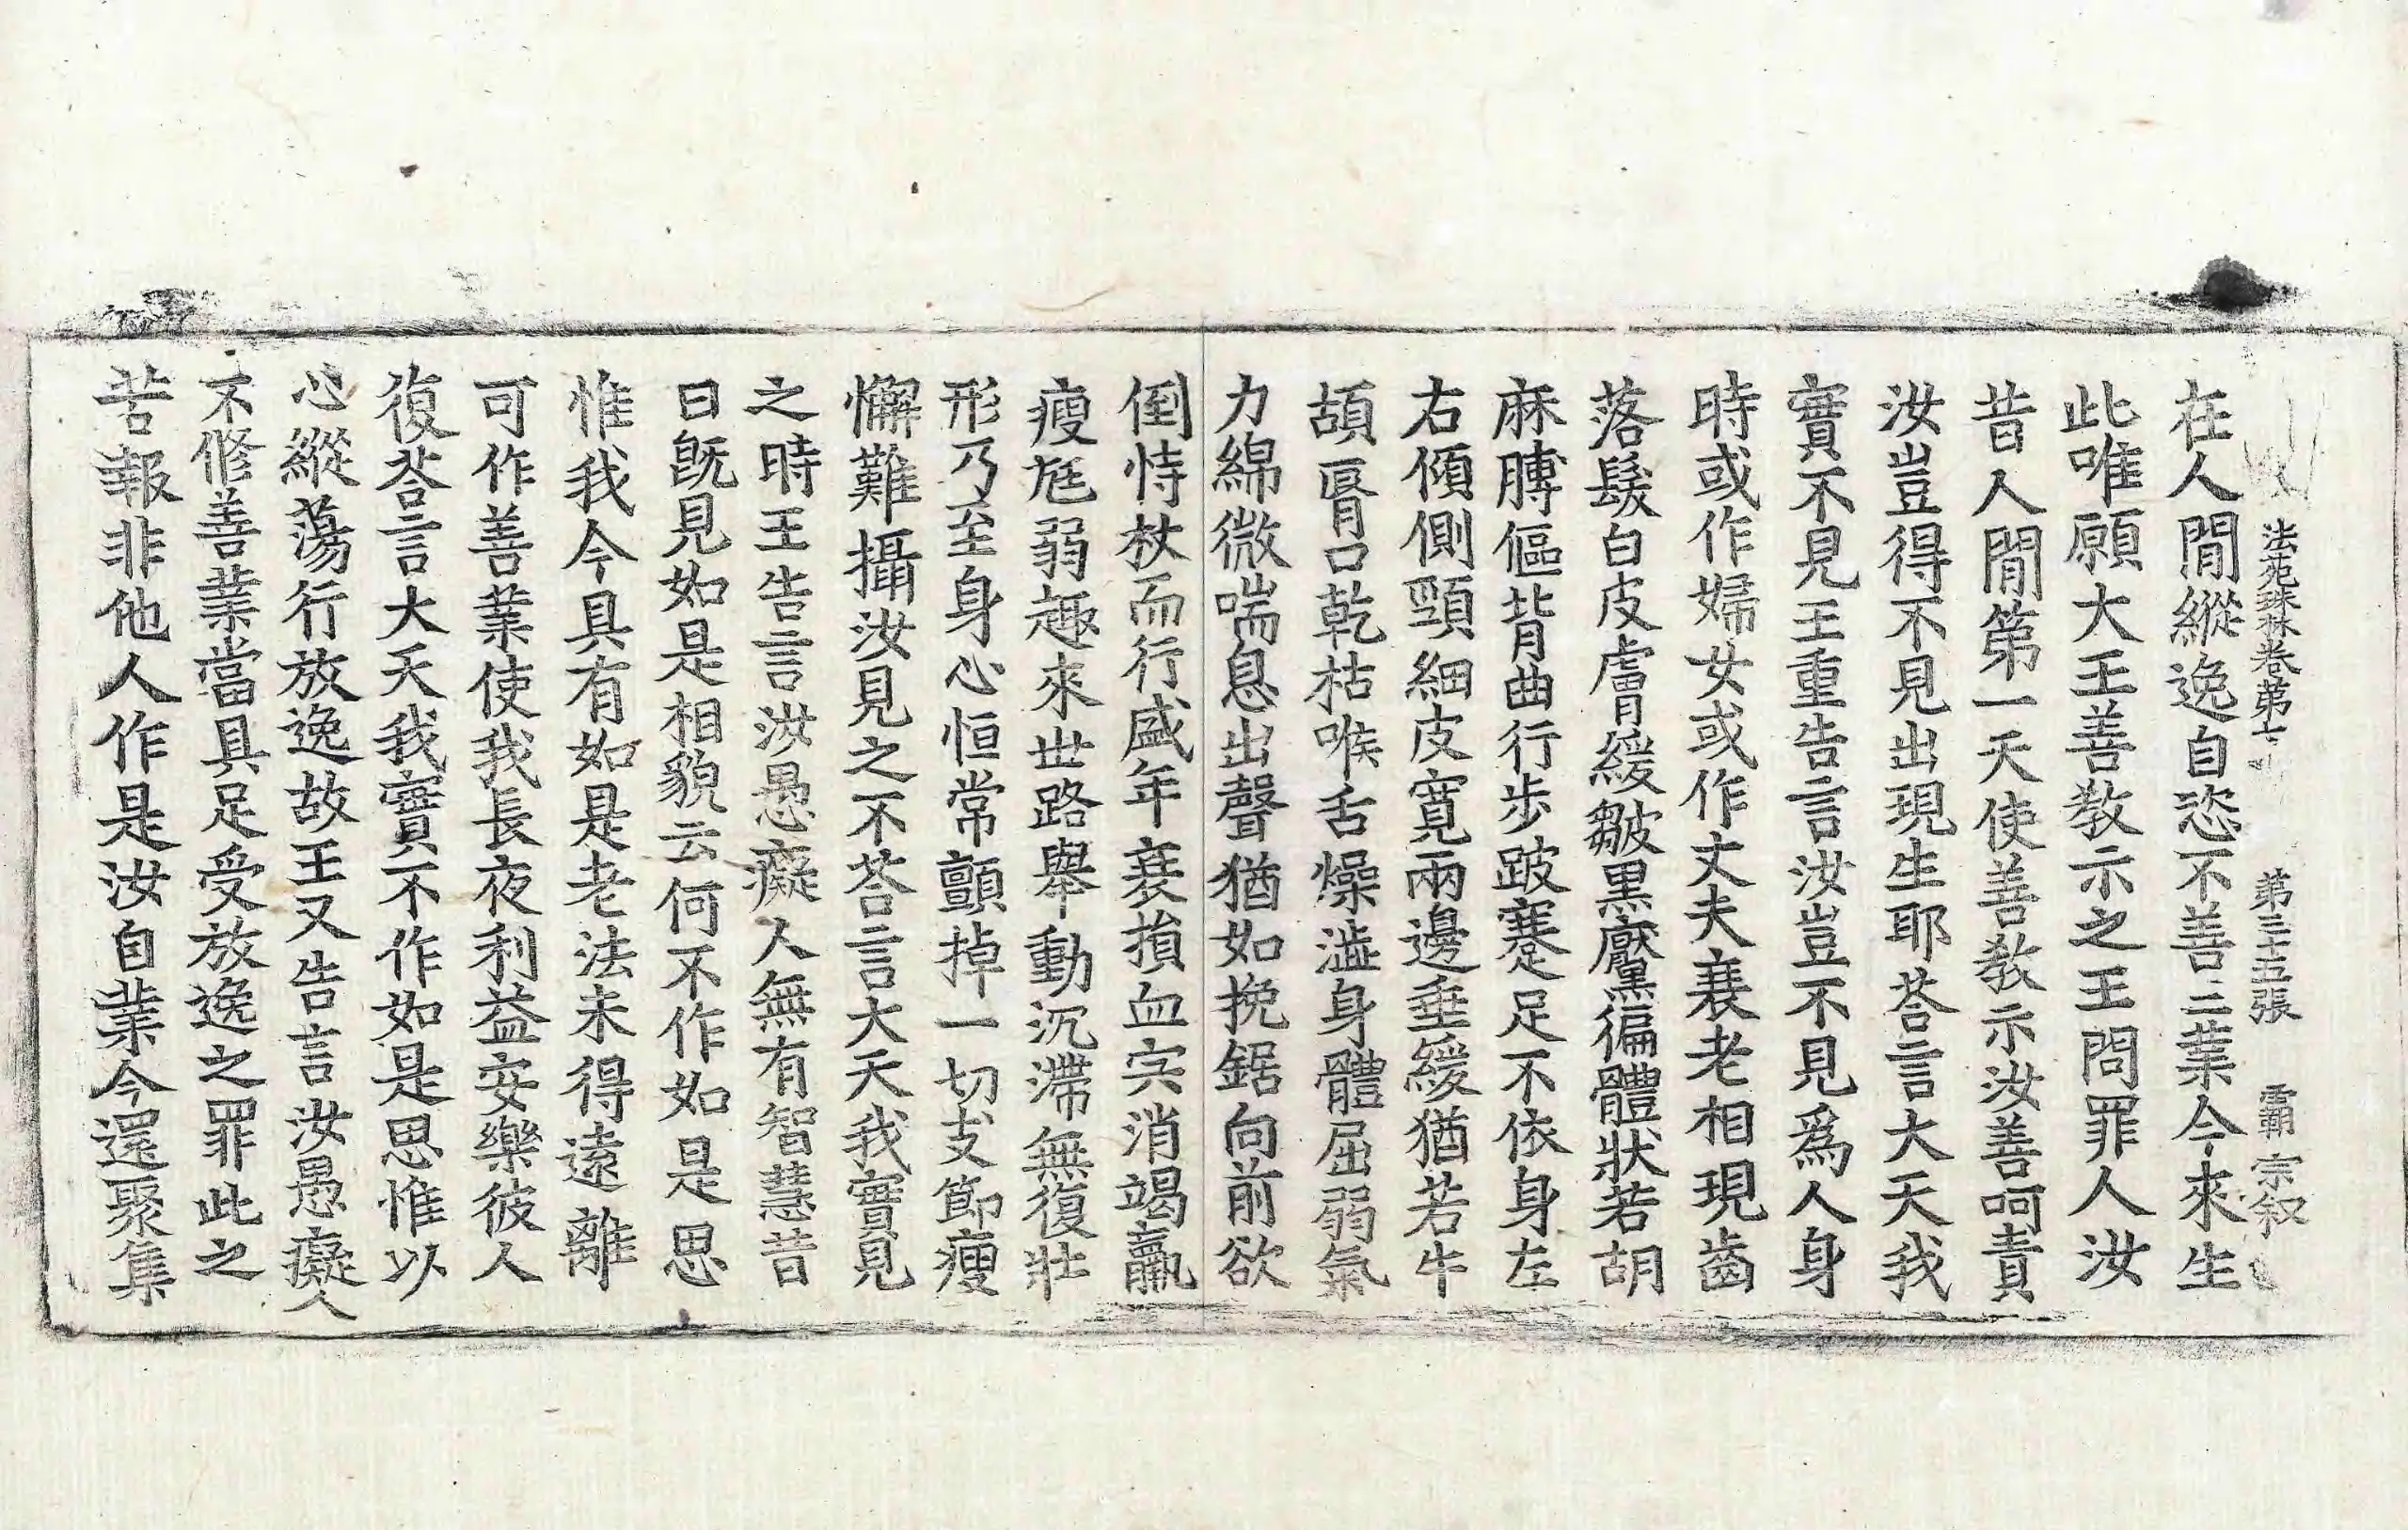 法苑珠林卷第七 第三十五張 霸 宗叙
在人閒縱逸自恣不善三業今來生
此唯願大王善教示之王問罪人汝
昔人閒第一天使善教示汝善呵責
汝豈得不見出現生耶荅言大天我
實不見王重告言汝豈不見爲人身
時或作婦女或作丈夫衰老相現齒
落髮白皮膚緩皺黑黶徧體狀若胡
麻膊傴背曲行步跛蹇足不依身左
右傾側頸細皮寬兩邊垂緩猶若牛
頡脣口乾枯喉舌燥澁身體屈弱氣
力綿微喘息出聲猶如挽鋸向前欲
倒恃杖而行盛年衰損血宍消竭羸
瘦尩弱趣來世路舉動沉滯無復壯
形乃至身心恒常顫掉一切支節瘦
懈難攝汝見之不荅言大天我實見
之時王告言汝愚癡人無有智慧昔
日旣見如是相貌云何不作如是思
惟我今具有如是老法未得遠離
可作善業使我長夜利益安樂彼人
復荅言大天我實不作如是思惟以
心縱蕩行放逸故王又告言汝愚癡人
不修善業當具足受放逸之罪此之
苦報非他人作是汝自業今還聚集